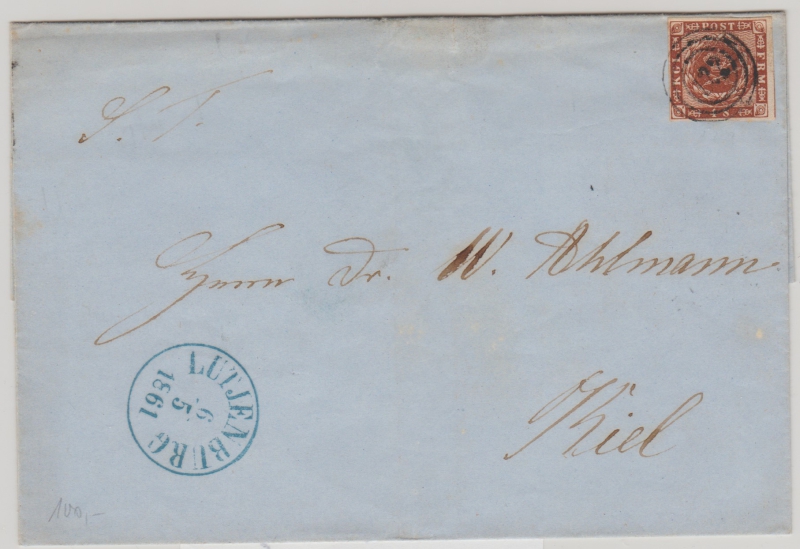 KGL POST FRM
4 S
S. T.
Herrn Dr. W. Ahlmann
Kiel
LUTJENBURG
6 5
1861
100,-